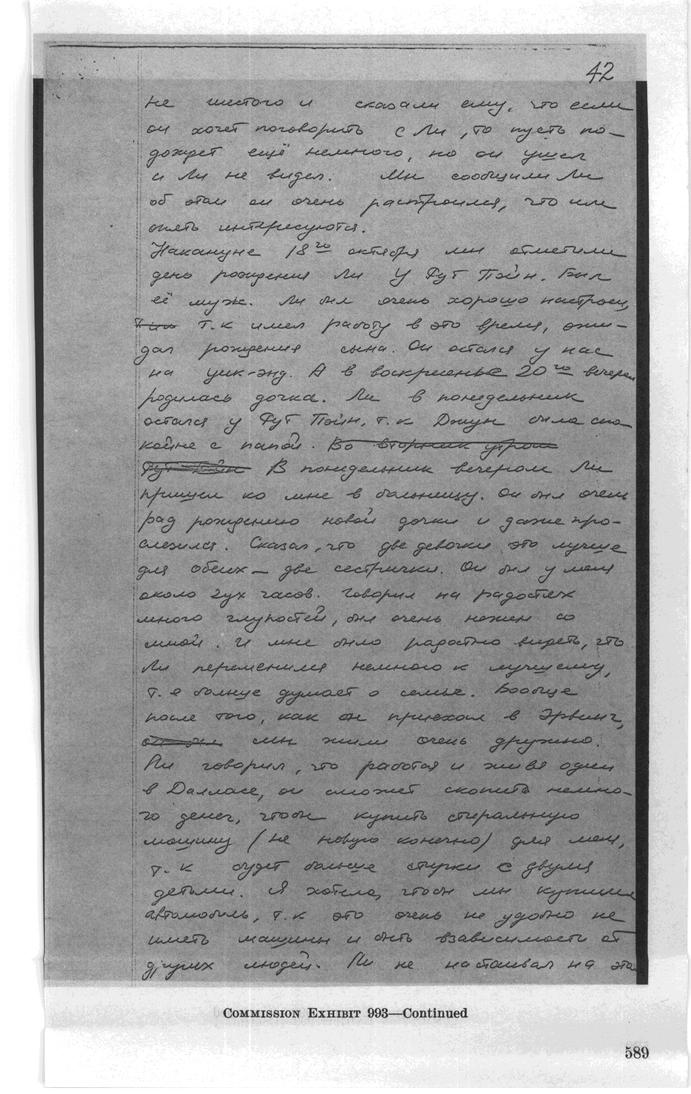 42
не шестого и сказали ему, что если
он хочет поговорить с Ли, то пусть по-
дождет ещё немного, но он ушел
и Ли не видел. Мы сообщили Ли
об этом он очень расстроился, что им
опять интересуются.
Накануне 18го октября мы отметили
день рождения Ли у Рут Пэйн. Был
её муж. Ли был очень хорошо настроен,
т.к имел работу в это время, ожи-
дал рождения сына. Он остался у нас
на уик-энд. А в воскресенье 20го вечером
родилась дочка. Ли в понедельник
остался у Рут Пэйн, т.к Джун была спо
койне с папой. Во вторник утром
Рут Пэйн В понедельник вечером Ли
пришел ко мне в больницу. Он был очень
рад рождению новой дочки и даже про-
слезился. Сказал, что две девочки это лучше
для обеих – две сестрички. Он был у меня
около 2ух часов. Говорил на радостях
много глупостей, был очень нежен со
мной. И мне было радостно видеть, что
Ли переменился немного к лучшему,
т.е больше думает о семье. Вообще
после того, как он приехал в Эрвинг,
мы жили очень дружно.
Ли говорил, что работая и живя один
в Далласе, он сможет скопить немно-
го денег, чтобы купить стиральную
машину (не новую конечно) для меня,
т.к будет больше стирки с двумя
детьми. Я хотела, чтобы мы купили
автомобиль, т.к это очень не удобно не
иметь машины и быть взависимости от
других людей. Ли не настаивал на это
COMMISSION EXHIBIT 993—Continued
589